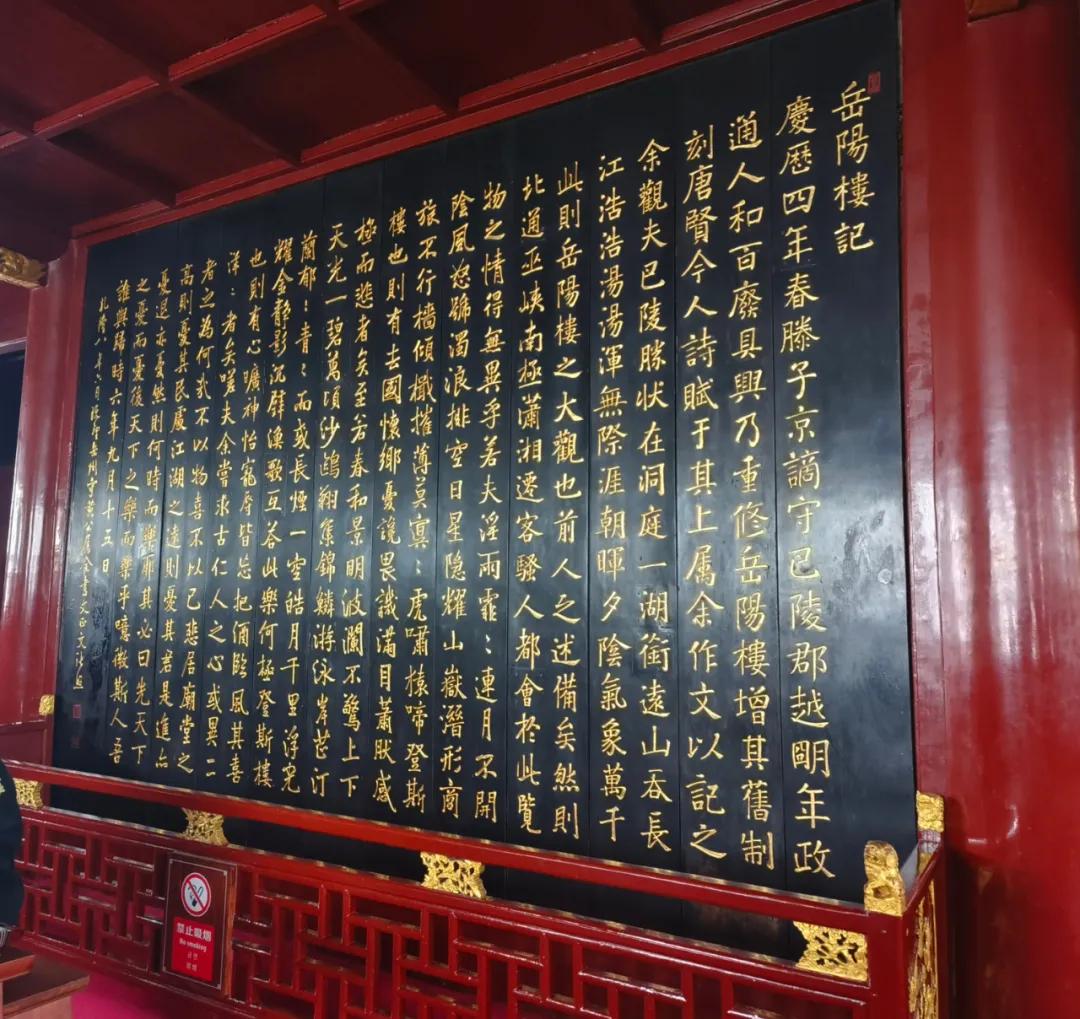 岳陽樓記
慶歷四年春滕子京謫守巴陵郡越明年政
通人和百廢具興乃重修岳陽樓增其舊制
刻唐賢今人詩賦于其上属余作文以記之
余觀夫巴陵勝狀在洞庭一湖銜遠山吞長
江浩浩湯湯渾無際涯朝暉夕陰氣象萬千
此則岳陽樓之大觀也前人之述備矣然則
北通巫峽南極瀟湘遷客騷人都會於此覧
物之情得無異乎若夫淫雨霏〻連月不開
陰風怒號濁浪排空日星隱耀山嶽潛形商
旅不行檣傾檝摧薄莫冥〻虎嘯猿啼登斯
樓也則有去國懷鄉憂讒畏譏滿目蕭然感
極而悲者矣至若春和景明波瀾不驚上下
天光一碧萬頃沙鷗翔集錦鱗游泳岸芷汀
蘭郁〻青〻而或長煙一空皓月千里浮光
耀金靜影沉璧漁歌互答此樂何極登斯樓
也則有心曠神怡寵辱皆忘把酒臨風其喜
洋〻者矣嗟夫余嘗求古仁人之心或異二
者之為何哉不以物喜不以己悲居廟堂之
高則憂其民處江湖之遠則憂其君是進亦
憂退亦憂然則何時而樂耶其必曰先天下
之憂而憂後天下之樂而樂乎噫微斯人吾
誰與歸時六年九月十五日
乾隆八年六月岳州守黃公屬書文正文張照
禁止吸烟
No smoking
금연